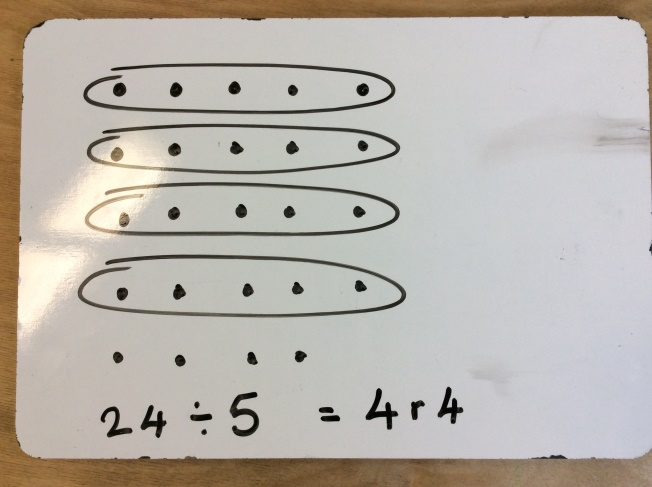 24 ÷ 5 = 4 r 4